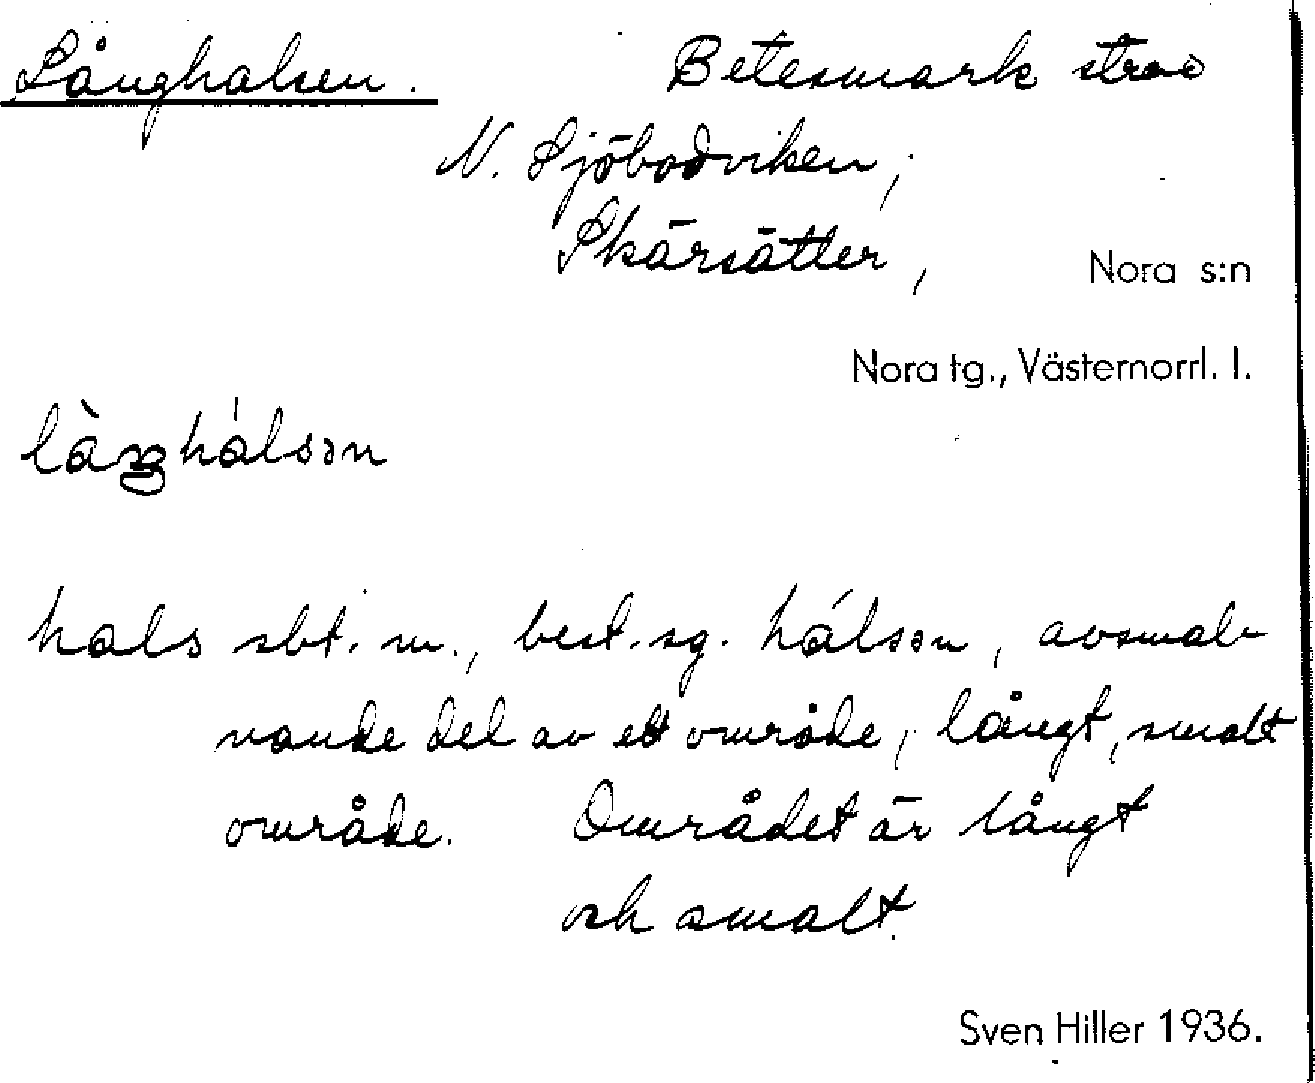 Långhalsen. Betesmark strax
N. Sjöbodviken,
Skärsätter,
Nora s:n
Nora tg., Västernorrl. l.
hals sbt. m., best. sg. hálsən, avsmal-
nande del av ett område, långt, smalt
område. Området är långt
och smalt.
Sven Hiller 1936.